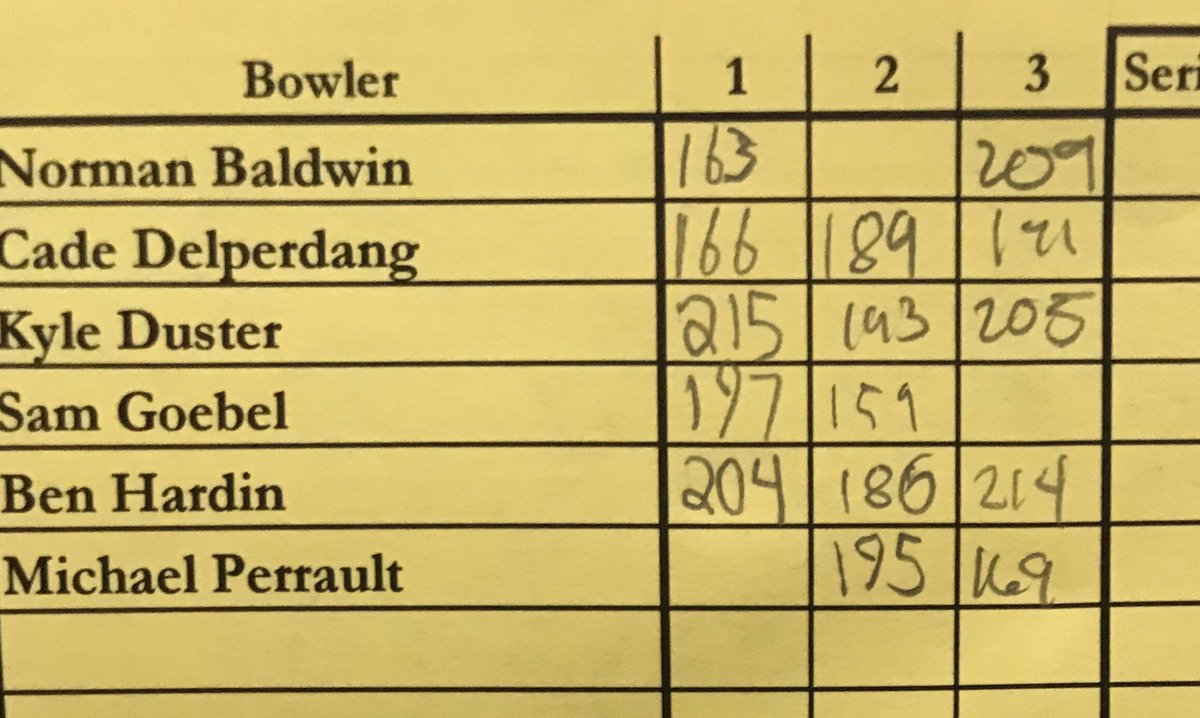 Bowler 1 2 3 Seri
Norman Baldwin 163 209
Cade Delperdang 166 189
Kyle Duster 215 193 205
Sam Goebel 197 159
Ben Hardin 204 186 214
Michael Perrault 195 169